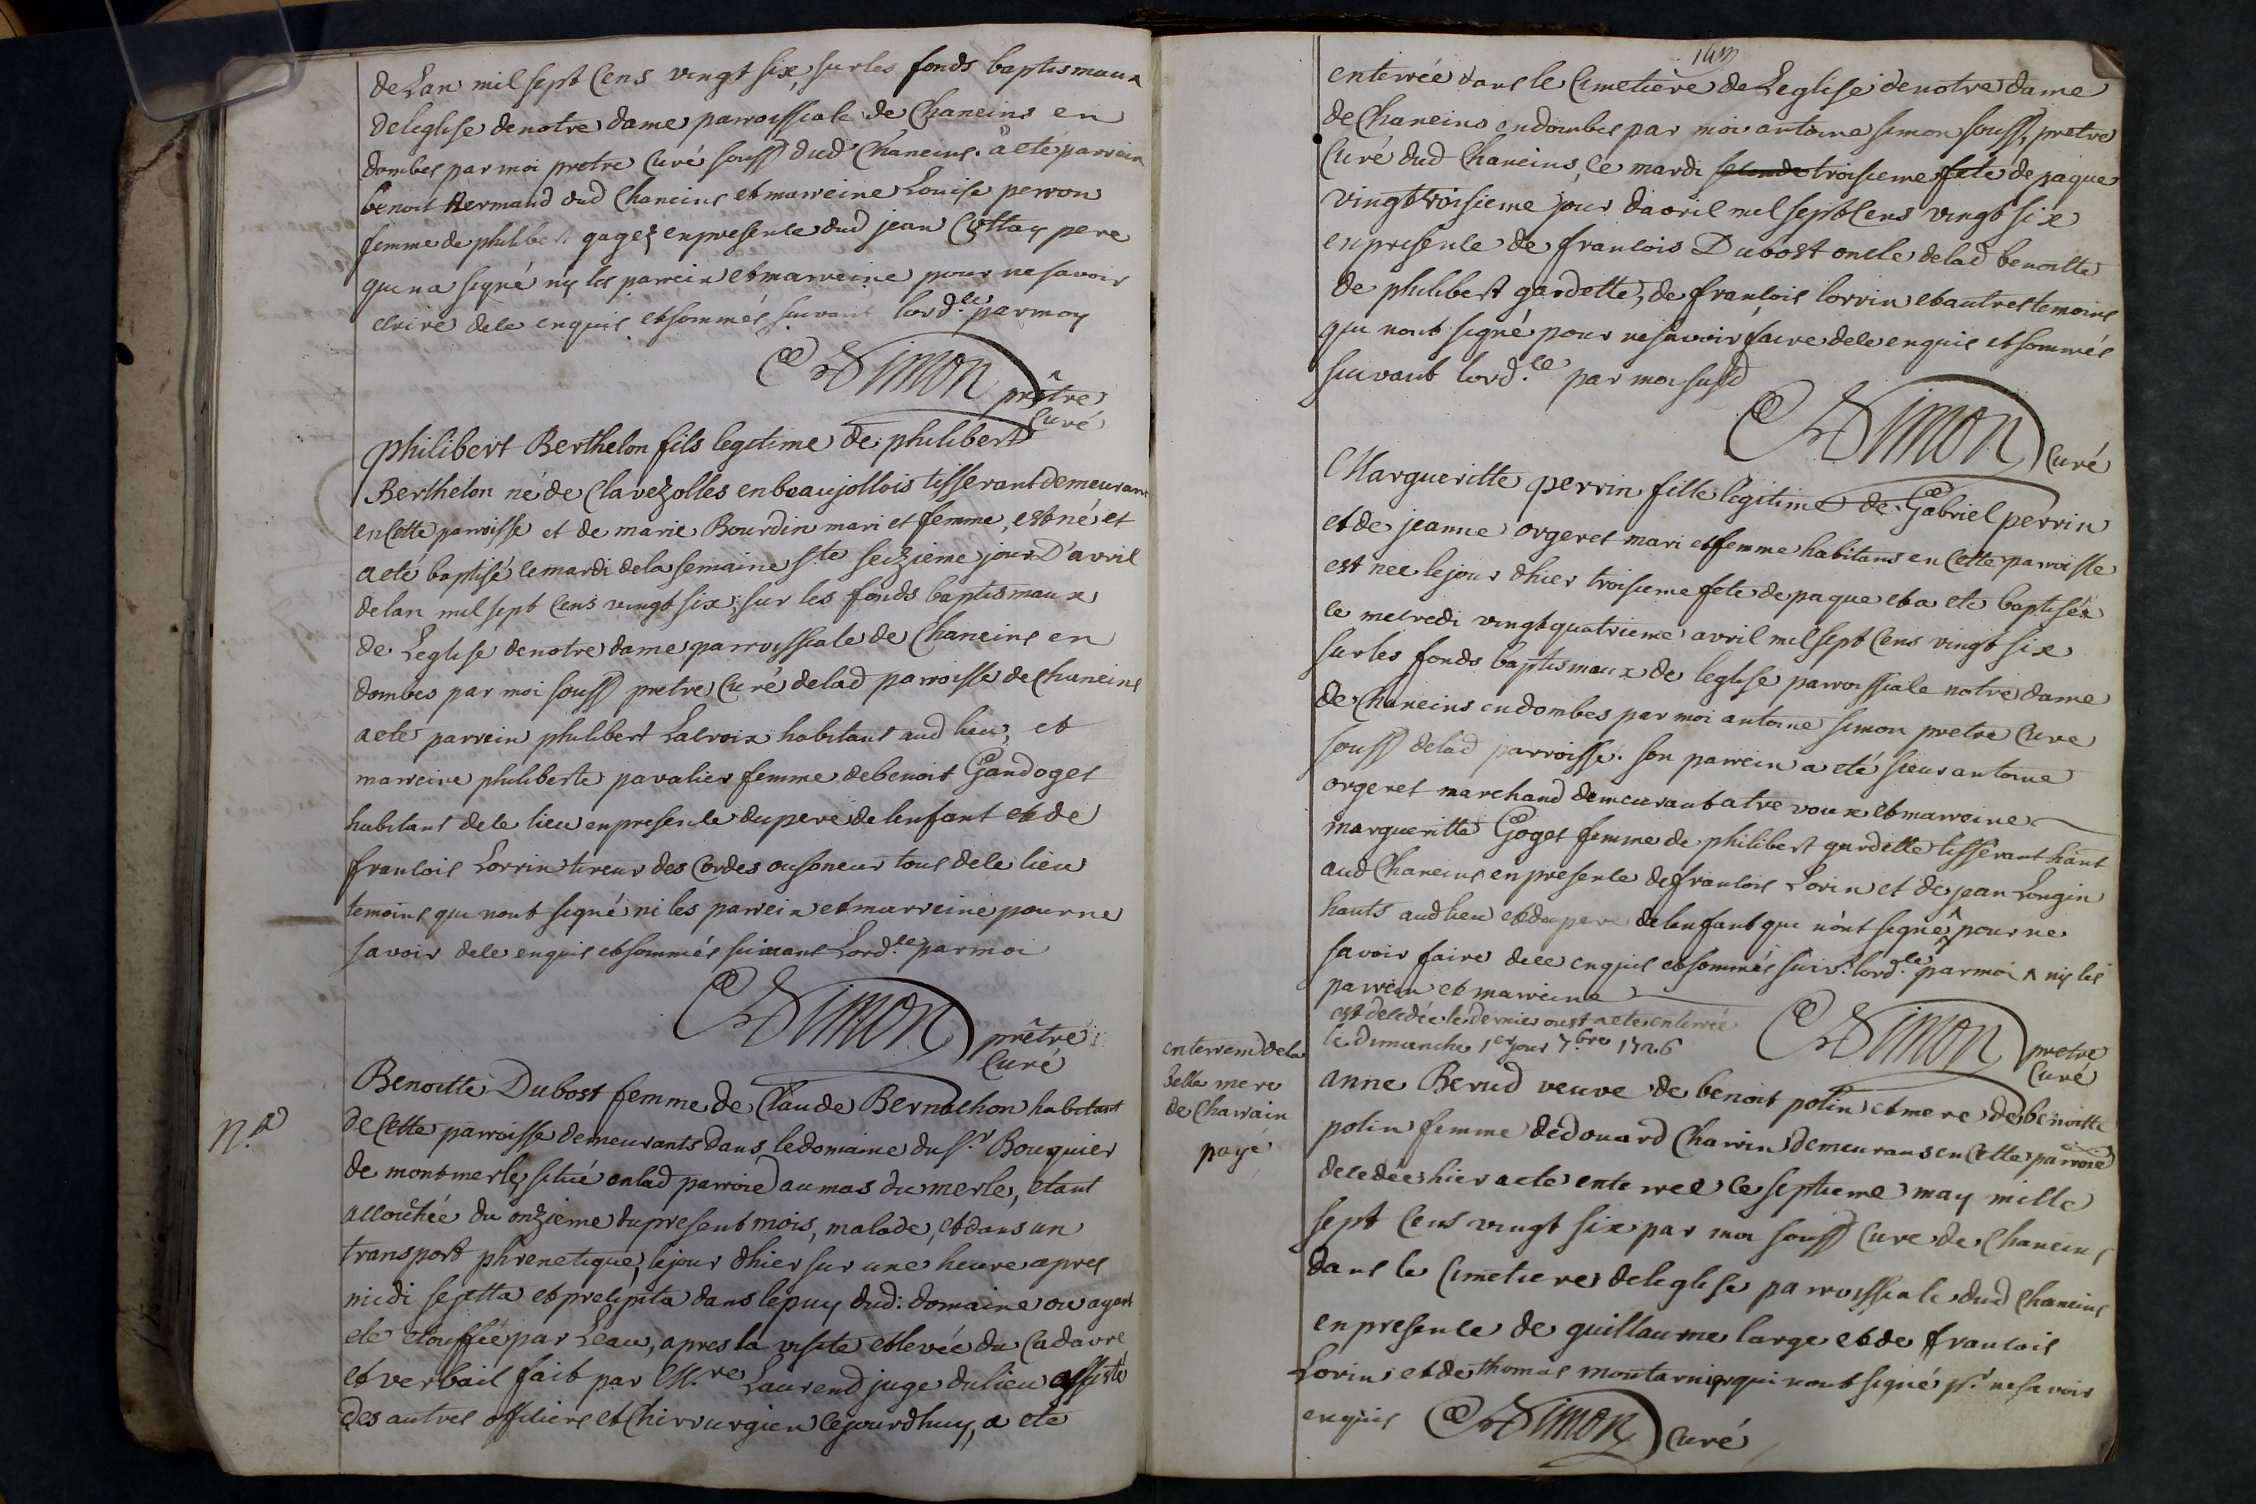 de Lan mil sept Cens vingt six, sur les fonds baptismaux
de leglise de notre dame parroissiale de Chaneins en
dombes par moi pretre Curé souss dud Chaneins. a eté parrein
benoit Bermand dud Chaneins et marreine Louise perron
femme de philibert gagez en presence dud jean Cottay pere
qui na signé ny les parrein et marreine pour ne savoir
ecrire de ce enquis et sommés suivant lord.ce par moy
Simon prêtre
Curé
philibert Berthelon fils legitime de philibert
Berthelon né de Clavezolles en beaujollois tisserant demeurant
en Cette parroisse et de marie Bourdin mari et femme, est né et
a eté baptisé le mardi de la semaine s.te seizieme jour D'avril
de lan mil sept Cens vingt six, sur les fonds baptismaux
de Leglise de notre dame parroissiale de Chaneins en
dombes par moi souss pretre Curé de lad parroisse de Chaneins
a eté parrein philibert Lacroix habitant aud lieu, et
marreine philiberte pavalier femme de benoit Gandoget
habitant de ce lieu en presence du pere de lenfant et de
francois Lorrin tireur des Cordes ou soneur tous de ce lieu
temoins qui nont signé ni les parrein et marreine pour ne
savoir de ce enquis et sommés suivant Lord.ce par moi
Simon prêtre
Curé
n.a
Benoitte Dubost femme de Claude Bernachon habitant
de Cette parroisse demeurants dans le domaine du s.r Bouquier
de montmerle, situé en lad parroie au mas du merle, etant
accouchée du onzieme du present mois, malade, et dans un
transport phrenetique, le jour dhier sur une heure apres
midi se jetta et precipita dans le puy dud. domaine ou ayant
eté etouffée par Leau, apres la visite et levée du Cadavre
et verbail fait par M.re Laurend juge du lieu assisté
des autres officiers et Chirurgien ce jourdhuy, a eté
enterrée dans le Cimetiere de Leglise de notre dame
de Chaneins en dombes par moi antoine simon souss, pretre
Curé dud Chaneins, ce mardi seconde troisieme fete de paque
vingt troisieme jour davril mil sept Cens vingt six
en presence de francois Dubost oncle de lad benoitte
de philibert gardette, de francois lorrin et autres temoins
qui nont signé pour ne savoir faire de ce enquis et sommés
suivant lord.ce par moi susd
Simon Curé
Margueritte perrin fille legitime de Gabriel perrin
et de jeanne orgeret mari et femme habitans en Cette parroisse
est nee le jour dhier troisieme fete de paque et a eté baptisée
ce mecredi vingt quatrieme avril mil sept Cens vingt six
sur les fonds baptismaux de leglise parroissiale notre dame
de Chaneins en dombes par moi antoine simon pretre Cure
souss de lad parroisse. son parrein a eté sieur antoine
orgeret marchand demeurant a trevoux et marreine
margueritte Goget femme de philibert gardette tisserant hant
aud Chaneins en presence de francois Lorin et de jean Longin
hants aud lieu et du pere de lenfant qui n'ont signé ^ pour ne
savoir faire de ce enquis et sommés suiv.t lord.ce par moi ^ ny les
parrein et marreine
est decedée le dernier oust a eté enterrée
le dimanche 1er jour 7.bre 1726
Simon pretre
Curé
enterrem de la
belle mere
de Charrain
payé
anne Berud veuve de benoit polin et mere de benoitte
polin femme dedouard Charrin demeurans en Cette parroie
decedée hier a eté enterree ce septieme may mille
sept Cens vingt six par moi souss Cure de Chaneins
dans le Cimetiere de leglise parroissiale dud Chaneins
en presence de guillaume large et de francois
Lorin et de thomas montarnier qui nont signé p.r ne savoir
enquis Simon Curé